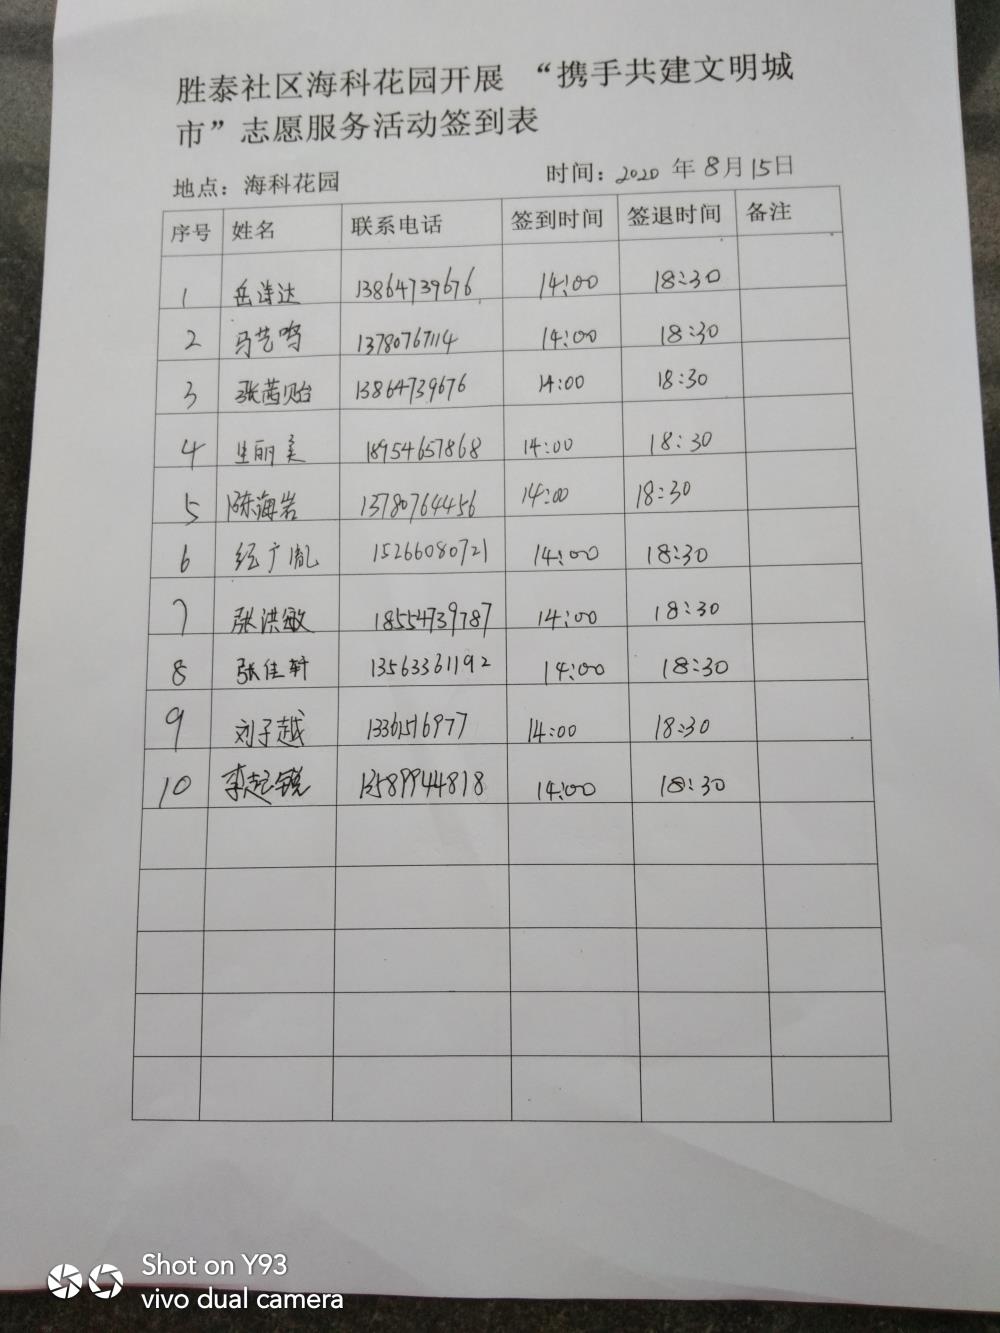 胜泰社区海科花园开展 “携手共建文明城
市”志愿服务活动签到表
地点：海科花园 时间：2020 年 8月 15日
序号 姓名 联系电话 签到时间 签退时间 备注
1 岳诗达 13864739676 14:00 18:30
2 马艺鸣 13780767114 14:00 18:30
3 张茜贻 13864739676 14:00 18:30
4 生丽美 18954657868 14:00 18:30
5 陈海岩 13780764456 14:00 18:30
6 纪广胤 15266080721 14:00 18:30
7 张洪敏 18554739787 14:00 18:30
8 张佳轩 13563361192 14:00 18:30
9 刘子越 13361516977 14:00 18:30
10 李起锐 13589944818 14:00 18:30
Shot on Y93
vivo dual camera